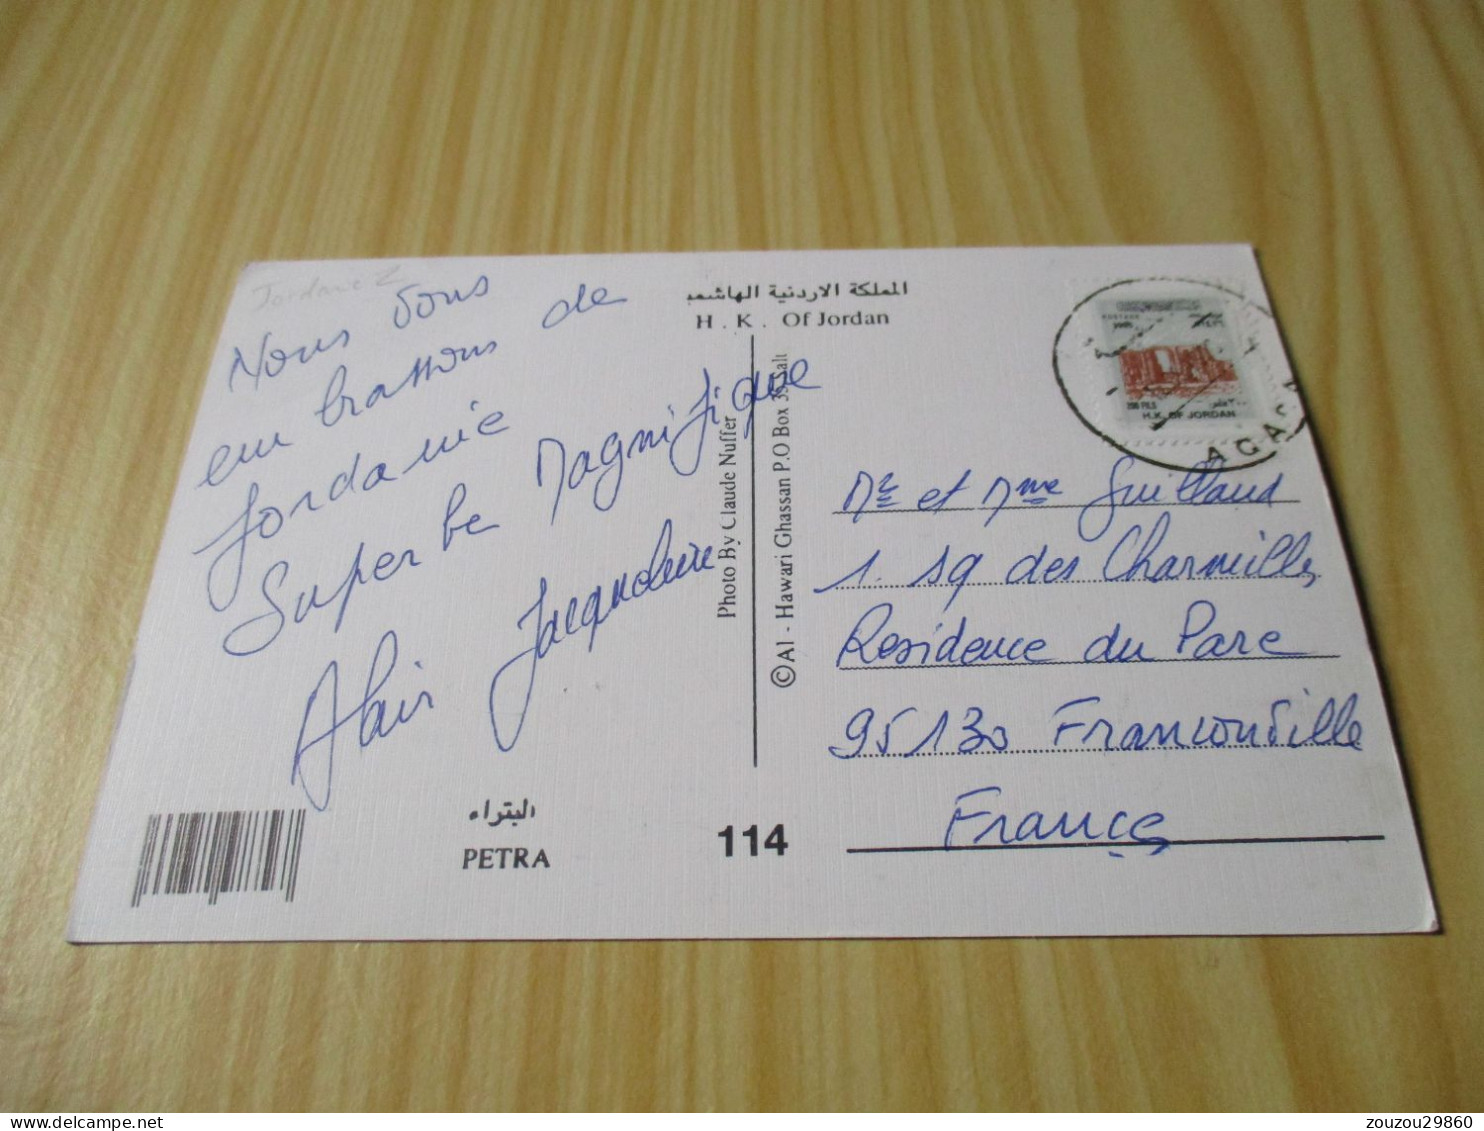 Jordanie
Nous vous
embrassons de
Jordanie
Superbe Magnifique
Alain Jacqueline
البتراء
PETRA
114
المملكة الاردنية الهاشميـ
H . K . Of Jordan
Photo By Claude Nuffer
©Al - Hawari Ghassan P.O Box Salt
200 FILS
H.K. OF JORDAN
Mr et Mme Guillaud
1. sq des Charmilles
Residence du Parc
95130 Franconville
France
zouzou29860